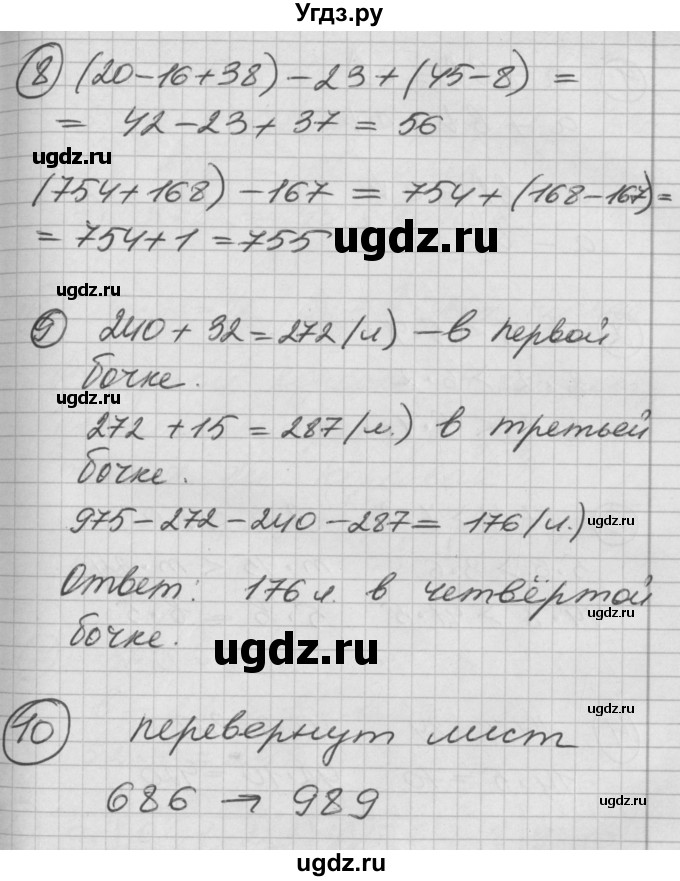 Угдз.ру
8 (20-16+38)-23+(45-8) =
= 42-23+37 = 56
ugdz.ru
(754+168)-167 = 754+(168-167)=
= 754+1 = 755 ugdz.ru
ugdz.ru
9 240+32=272(л) - в первой
бочке.
ugdz.ru
272 +15 = 287(л.) в третьей
бочке.
975-272-240-287= 176(л.)
ugdz.ru
Ответ: 176 л. в четвёртой
ugdz.ru
бочке. ugdz.ru
10 перевернут лист
686 → 989
ugdz.ru
ugdz.ru